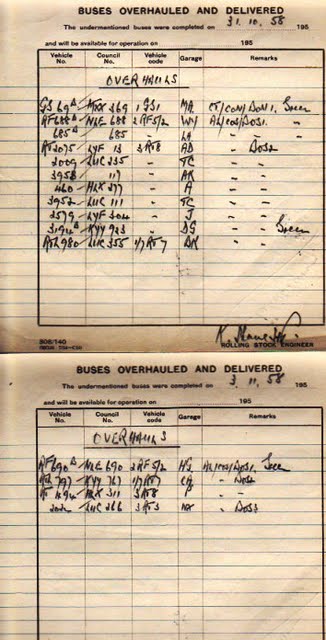 BUSES OVERHAULED AND DELIVERED
The undermentioned buses were completed on 31.10.58 195
and will be available for operation on 195
Vehicle No. Council No. Vehicle code Garage Remarks
OVERHAULS
GS 69 MXX 369 1 GS1 MA CT/CON/DOS1. Green
RF 688 NLE 688 2RF5/2 WY AL/CON/DOS1. "
685 685 " LA " "
RT 2075 LYF 13 3RT8 AD " DOS2
2009 LUC 235 " TC " "
3958 117 " AK " "
460 HLX 277 " A " "
3952 LUC 111 " TC " "
3579 LYF 304 " J " "
3194 KYY 923 " DS " Green
RTL 980 LUC 355 1/7RT7 BK " "
ROLLING STOCK ENGINEER
BUSES OVERHAULED AND DELIVERED
The undermentioned buses were completed on 3.11.58 195
and will be available for operation on 195
Vehicle No. Council No. Vehicle code Garage Remarks
OVERHAULS
RF 690 NLE 690 2RF5/2 HG AL/CON/DOS1. Green
RTL 797 KYY 767 1/7RT7 " DOS2
RT 1494 HLX 311 3RT8 P " "
LUC 266 3RT3 NX " DOS2